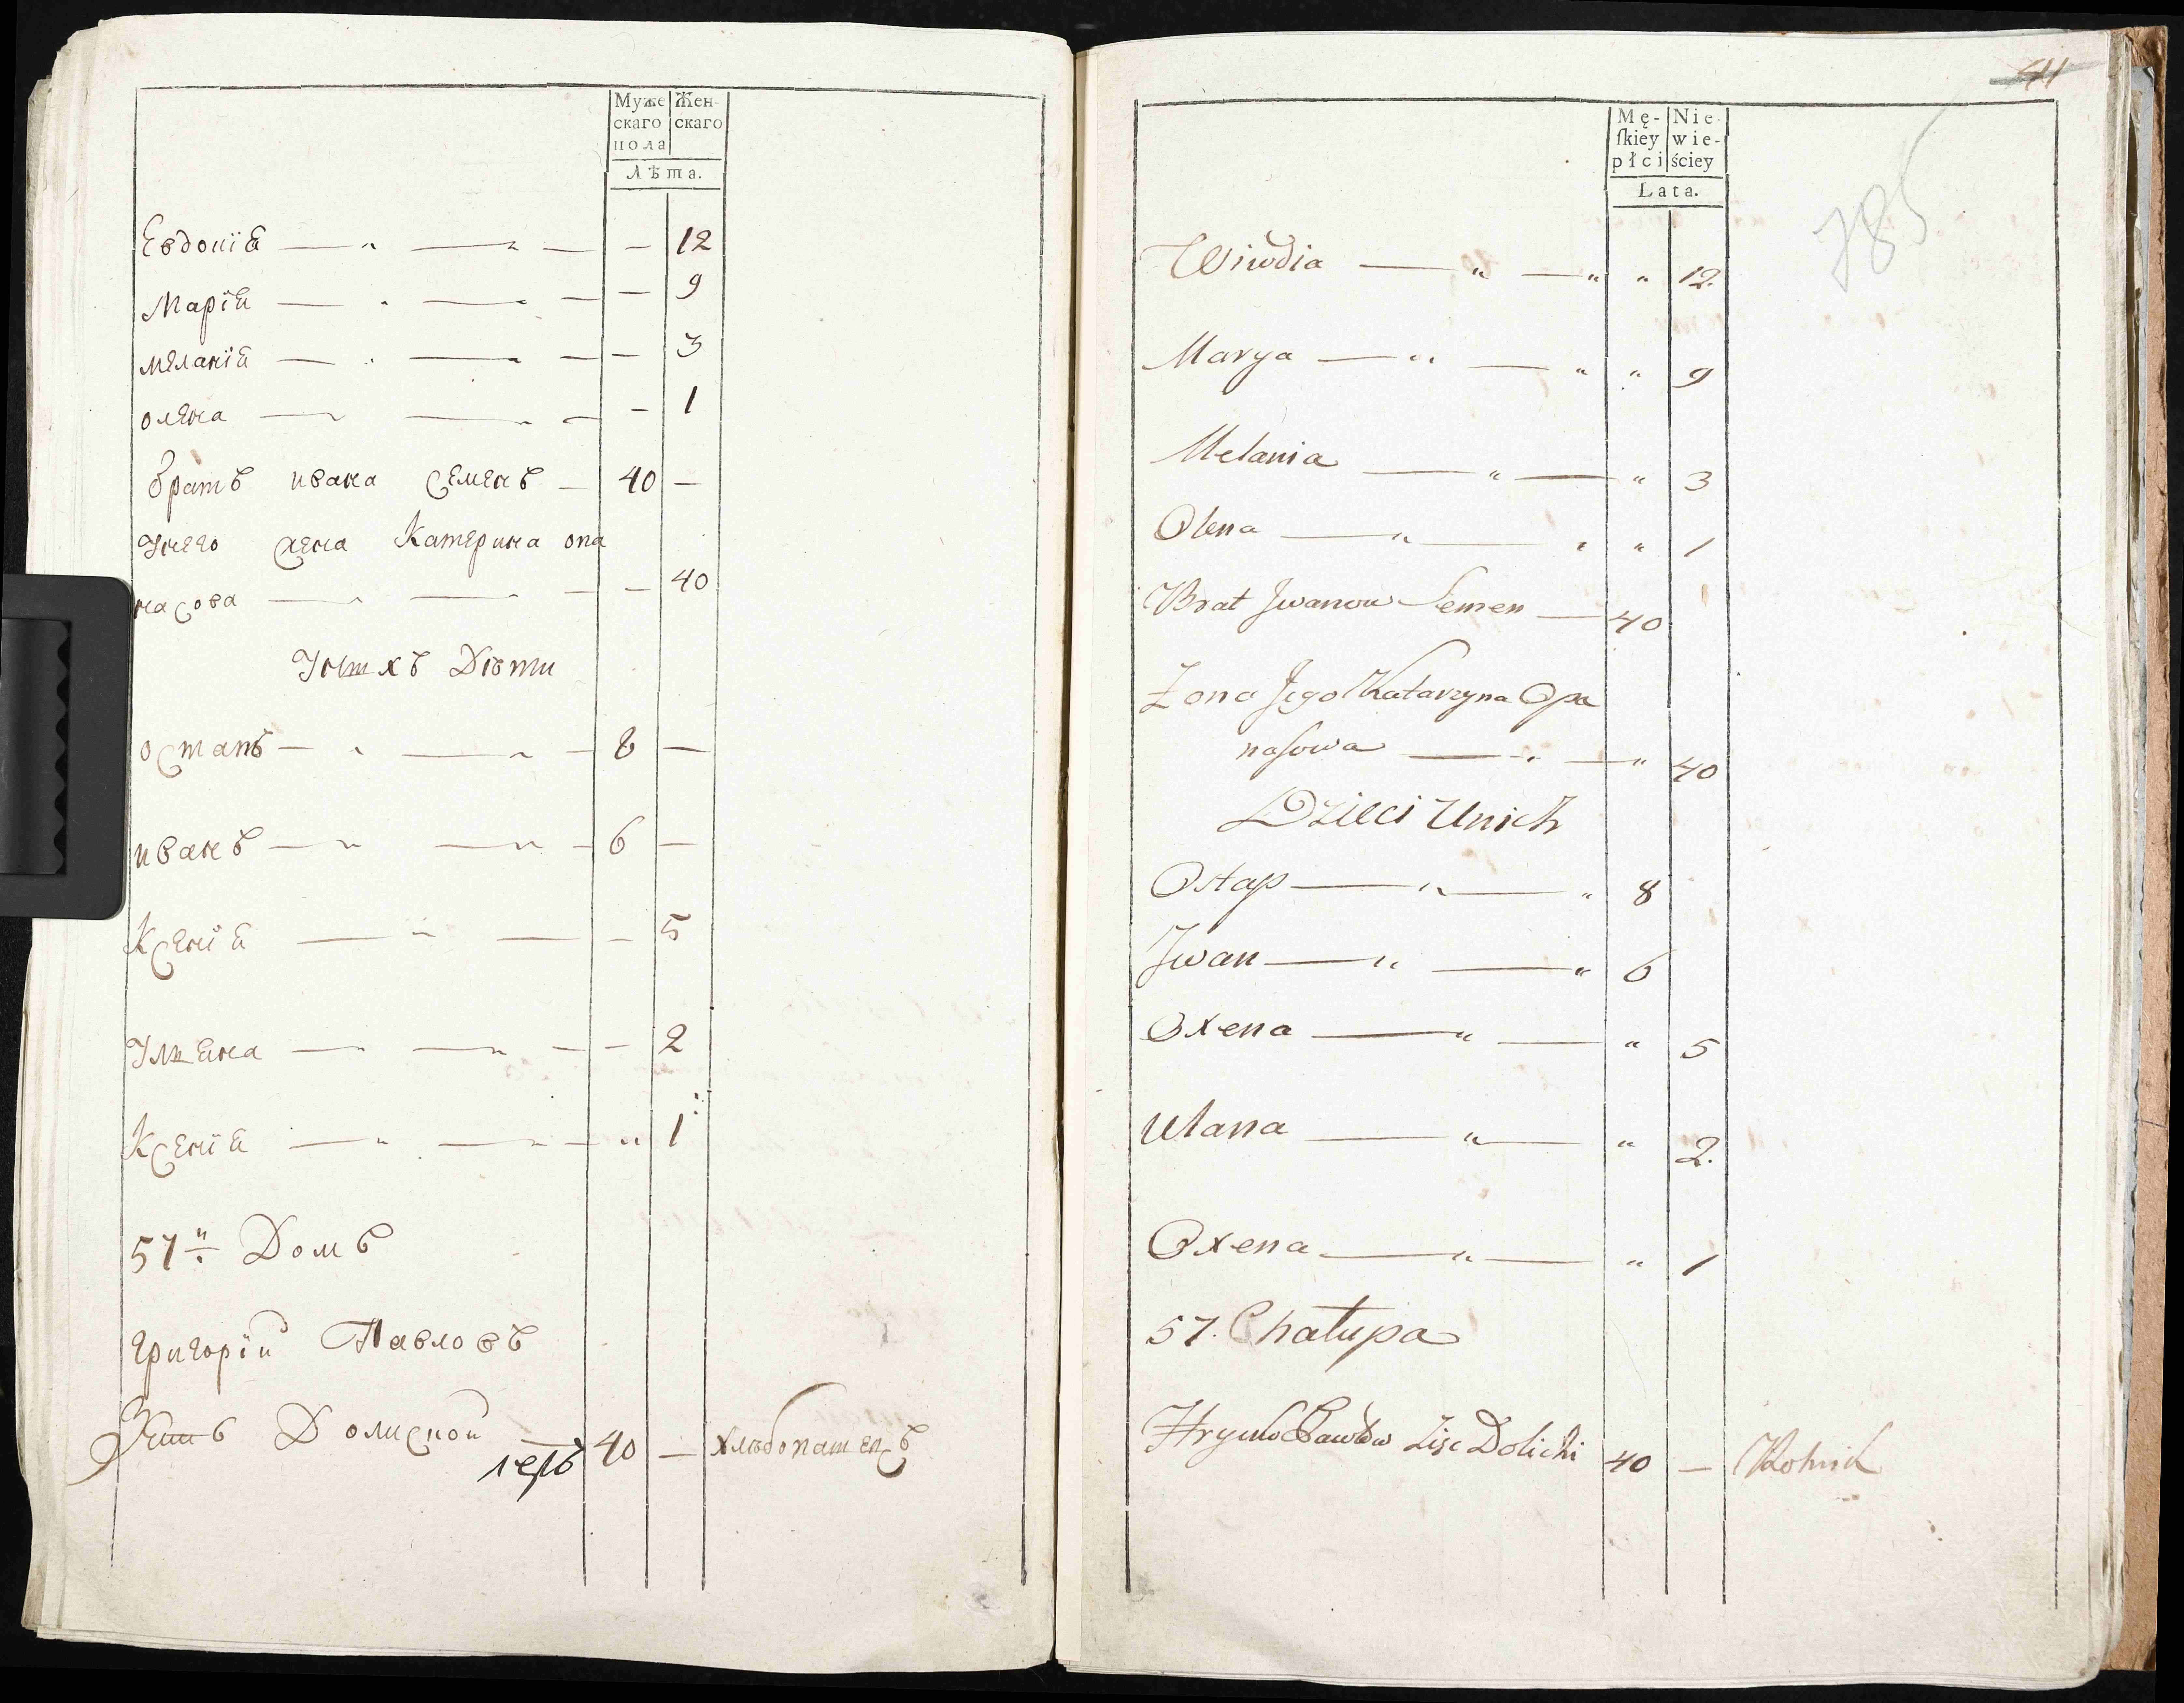 Муже Жен-
скаго скаго
пола
Лѣта.
Евдокїя — — — — 12
Марїя — — — — 9
мелания — — — — 3
олена — — — — 1
братъ ивана Семенъ — 40 —
Унего жена Катерина опа
насова — — — — 40
Унихъ Дѣти
остапъ — — — 8 —
иванъ — — — 6 —
Ксенїя — — — 5
Ульяна — — — — 2
Ксенїя — — — „ 1
57й Домъ
григорїй Павловъ
Зять Долиской 40 — хлѣбопашецъ
41
785
Mę- Nie-
ſkiey wie-
płci ściey
Lata.
Wiwdia — „ — „ „ 12.
Marya — „ — „ „ 9
Melania — „ — „ 3
Olena — „ — „ „ 1
Brat Jwanow Semen — 40
Żona Jego Katarzyna Opa
naſowa — „ — „ 40
Dzieci Unich
Ostap — „ — „ 8
Jwan — „ — „ 6
Oxena — „ — „ 5
Ulana — „ — „ 2.
Oxena — „ — „ 1
57. Chałupa
Hryńko Pawłow Zięc Dolicki 40 — Rolnik